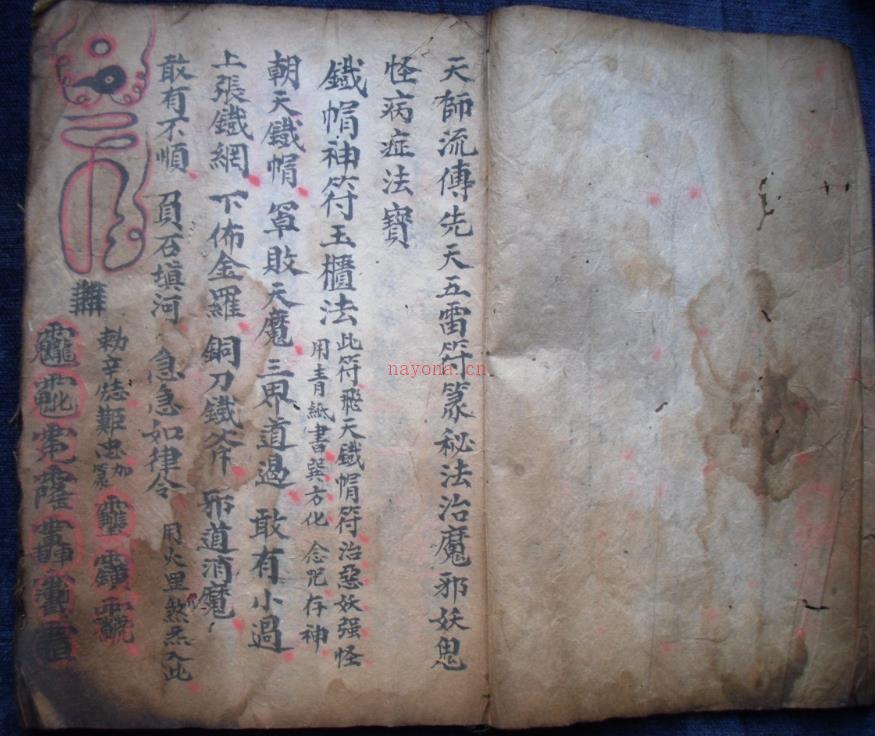 天師流傳先天五雷符篆秘法治魔邪妖鬼
怪病症法寶
鐵帽神符玉櫃法
此符飛天鐵帽符治惡妖强怪
用青紙書巽方化 念咒存神
朝天鐵帽 罩敗天魔 三界道過 敢有小過
上張鐵網 下佈金羅 銅刀鐵斧 邪道消魔
敢有不順 負石填河 急急如律令
用火 煞炁入此
nayona.cn